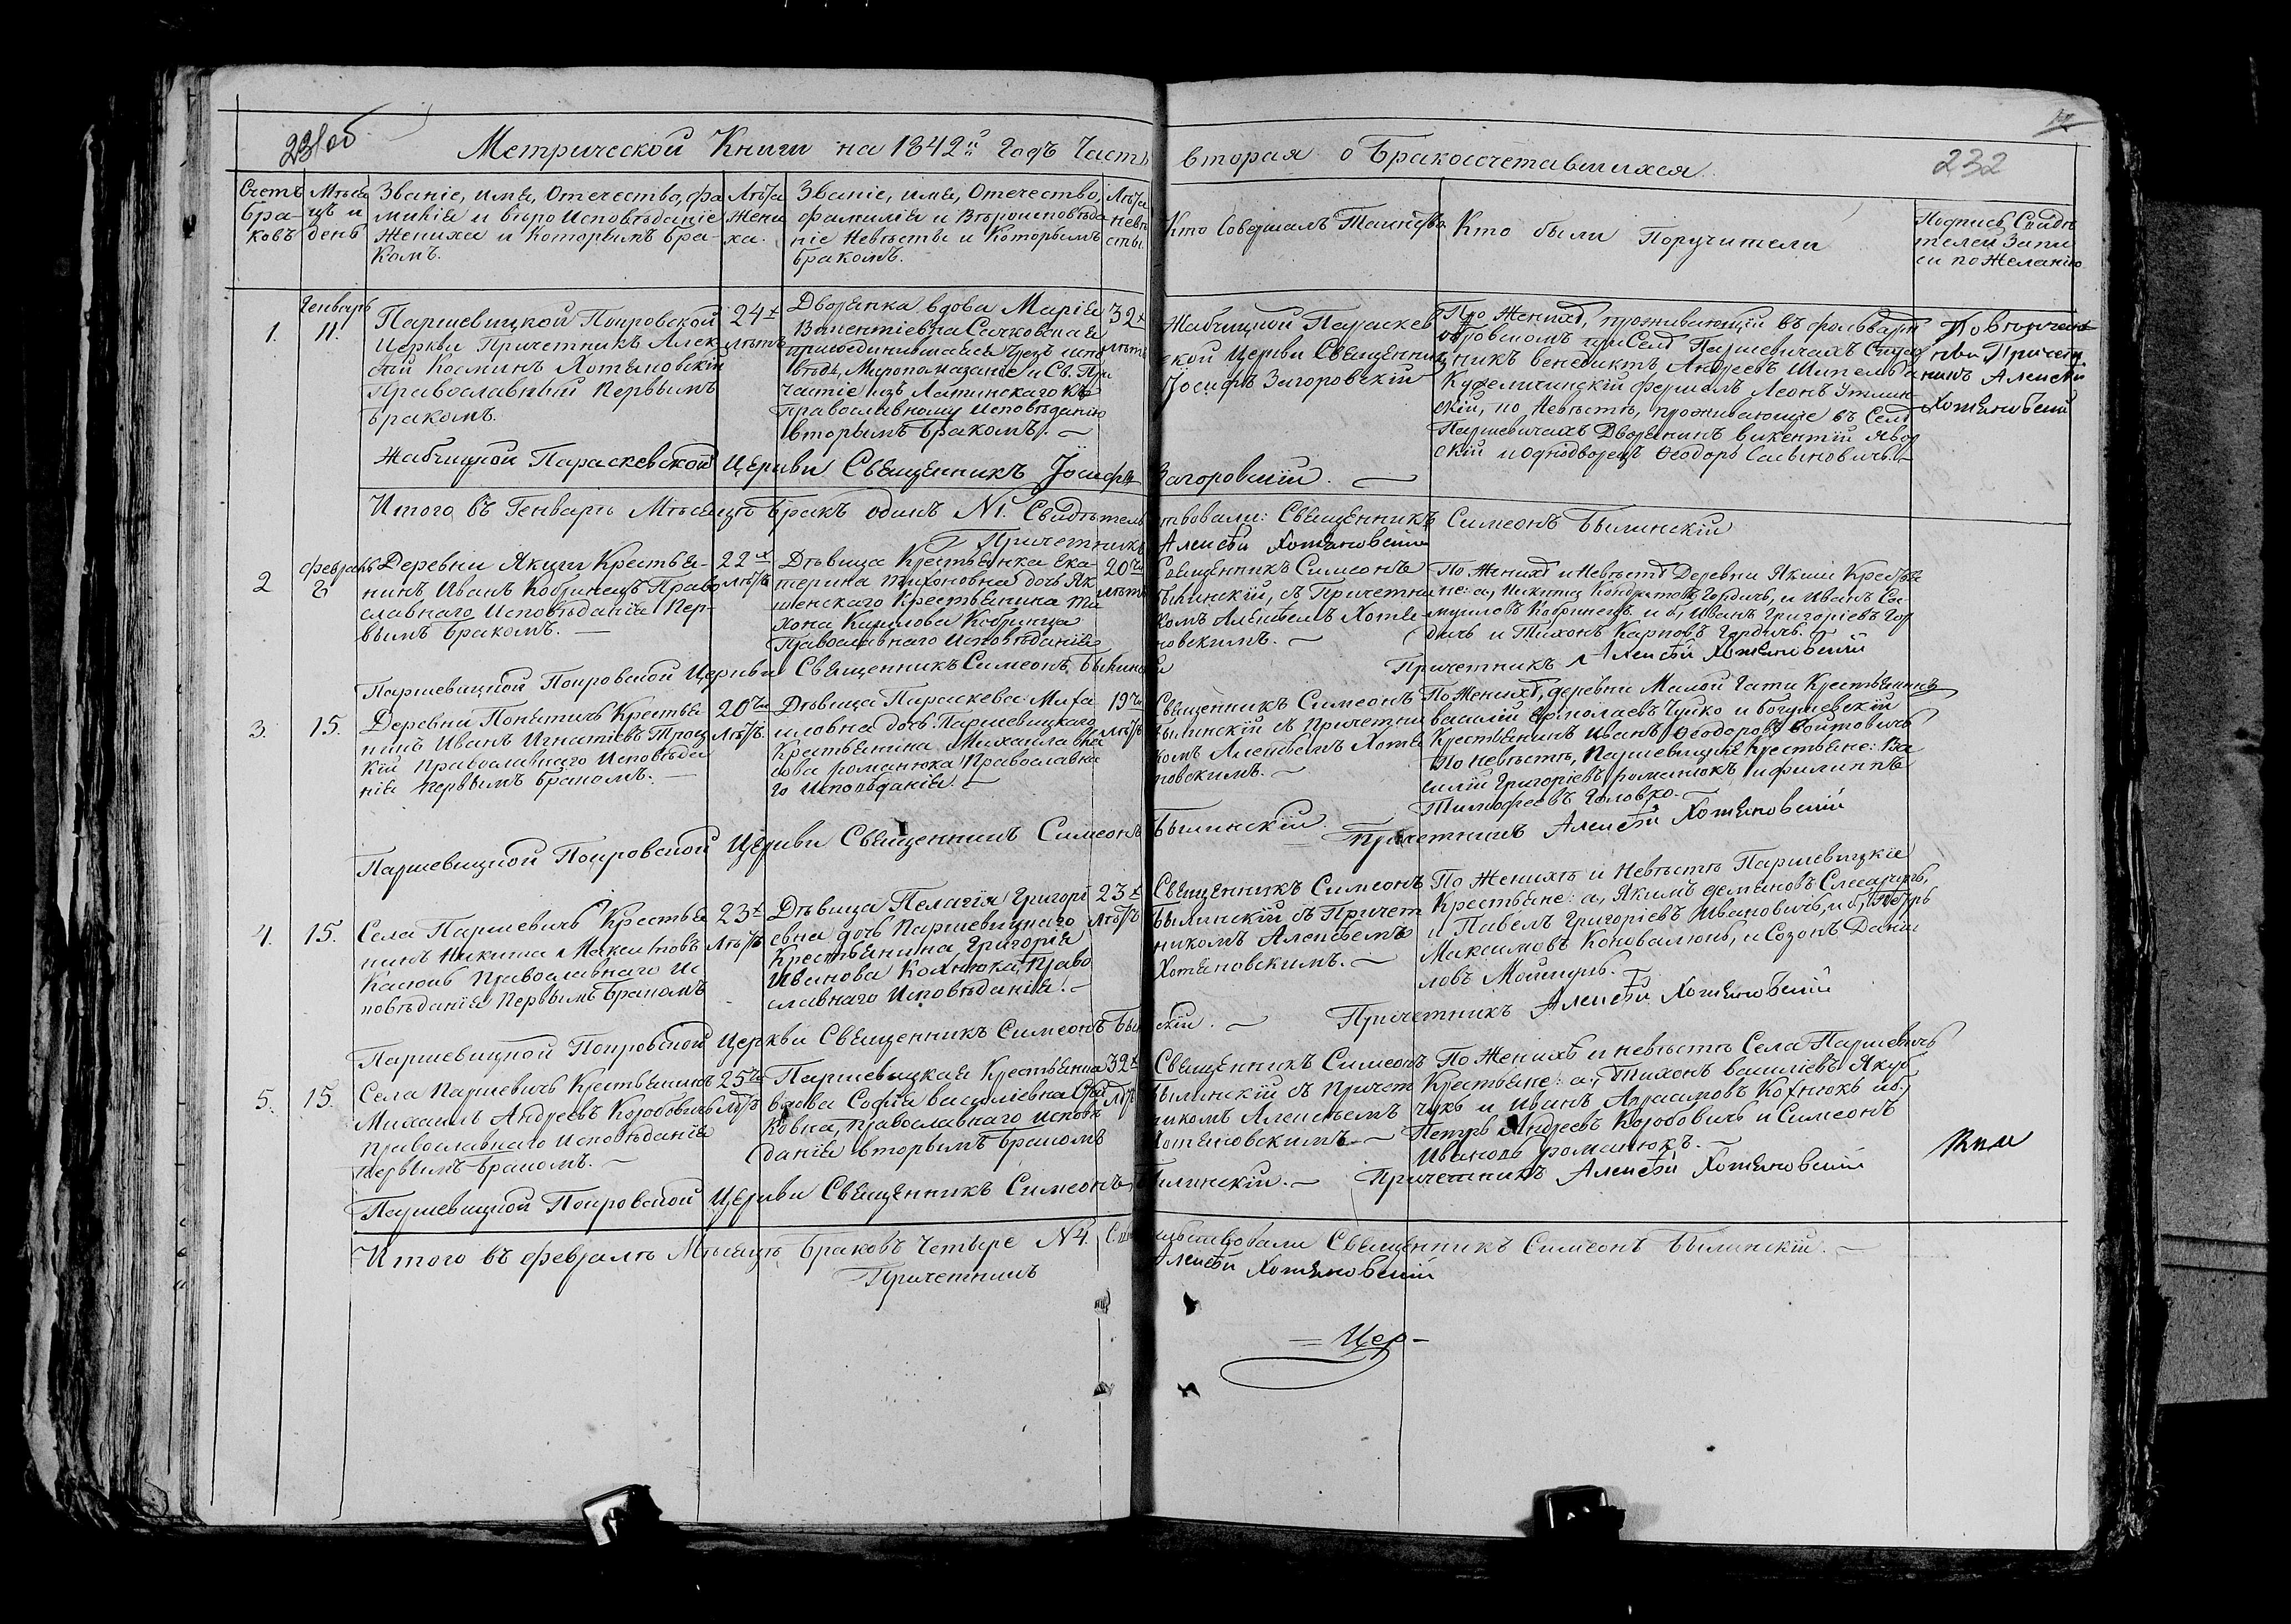 231об
Метрической Книги на 1842й Годъ Часть вторая о Бракосочетавшихся
232
Счетъ Бра- ковъ
Мѣся цъ и день
Званіе, имя, Отечество, фа
милія и вѣро Исповѣданіе
Жениха и Которымъ бра-
комъ.
Лѣта Жени ха.
Званіе, имя, Отечество,
фамилія и Вѣроисповѣда
ніе Невѣсты и Которымъ
бракомъ.
Лѣта невѣ сты
Кто Совершалъ Таинство
Кто были Поручители
Подпись Свидѣ
телей Запи
си по Желанію
1.
Генварь
11.
Паршевицкой Покровской
Церкви Причетникъ Алек
сѣй Косминъ Хотяновскій
Православный Первымъ
бракомъ.
24х
лѣтъ
Дворянка вдова Марія
Викентіевна
присоединившаяся чрезъ испо
вѣдь, Миропомазаніе и Св. При
частіе изъ Латинскаго къ
православному Исповѣданію
вторымъ бракомъ. —
32х
лѣтъ
Жабчицкой Параскев
ской Церкви Священник
Іосифъ Загоровскій
По Женихѣ, проживающій въ фольварк
при Селѣ Паршевичахъ
Венедиктъ Андреевъ
Леонъ
скій, по Невѣстѣ, проживающіе въ Селѣ
Паршевичахъ Дворянинъ Викентій Явор
скій и однодворецъ Ѳеодоръ Сасиновичъ.—
Причетн
никъ Алексѣй
Хотяновскій
Жабчицкой Параскевской Церкви Священникъ Іосифъ Загоровскій. —
Итого въ Генварѣ Мѣсяцѣ Бракъ одинъ №1. Свидѣтельствовали: Священникъ Симеонъ Былинскій
Причетникъ Алексѣй Хотяновскій
2
февраль
8
Деревни Якши Крестья-
нинъ Иванъ Кобринецъ Право
славнаго Исповѣданія Пер-
вымъ бракомъ. —
22х
лѣтъ
Дѣвица Крестьянка Ека-
терина Тихоновна дочь Як
шенскаго Крестьянина Ти
хона Кобринца
Православнаго Исповѣданія
20ти
лѣтъ
Священникъ Симеонъ
Былинскій, съ Причетни
комъ Алексѣемъ Хотя
новскимъ. —
По Женихѣ и Невѣстѣ Деревни Якши Крестья
не: а, Никита Кондратовъ Гордичъ, и Иванъ Са
муиловъ Кобринецъ. и б, Иванъ Григоріевъ Гор
дичъ и Тихонъ Карповъ Гордичъ.
Паршевицкой Покровской Церкви Священникъ Симеонъ Былинскій
Причетникъ Алексѣй Хотяновскій
3.
15.
Деревни Крестья
нинъ Иванъ Игнатіевъ Троц
кій Православнаго Исповѣда
нія первымъ бракомъ. —
20ти
Лѣтъ
Дѣвица Параскева Миха
иловна дочь Паршевицкаго
Крестьянина Михаила
Романюка Православна
го Исповѣданія. —
19ти
лѣтъ
Священникъ Симеонъ
Былинскій съ Причетни
комъ Алексѣемъ Хотя
новскимъ. —
По Женихѣ, деревни Малой Гати Крестьянинъ
Василій Ермолаевъ Чуйко и Богушевскій
Крестьянинъ Иванъ Ѳеодоровъ Войтовичъ
По невѣстѣ, Паршевицкіе Крестьяне: Ва
силій Григоріевъ Романюкъ и филиппъ
Тимофеевъ Головко.—
Паршевицкой Покровской Церкви Священникъ Симеонъ Былинскій
Причетникъ Алексѣй Хотяновскій
4.
15.
Села Паршевичъ Крестья
нинъ Никита Максимовъ
Касюкъ Православнаго Ис
повѣданія Первымъ Бракомъ
23х
Лѣтъ
Дѣвица Пелагія Григорі
евна дочь Паршевицкаго
Крестьянина Григорія
Иванова Кохнюка, Право
славнаго Исповѣданія. —
23х
Лѣтъ
Священникъ Симеонъ
Былинскій съ Причет
никомъ Алексѣемъ
Хотяновскимъ. —
По Женихѣ и Невѣстѣ Паршевицкіе
Крестьяне: а, Якимъ Демьяновъ
и Павелъ Григоріевъ Ивановичъ, и б, Петръ
Максимовъ Коновалюкъ, и Созонъ Дани
ловъ
Паршевицкой Покровской Церкви Священникъ Симеонъ Былинскій. —
Причетникъ Алексѣй Хотяновскій
5.
15.
Села Паршевичъ Крестьянинъ
Михаилъ Андреевъ Коробовичъ
Православнаго Исповѣданія
первымъ бракомъ. —
25ти
Лѣтъ
Паршевицкая Крестьянка
вдова Софія Василіевна
ковна, Православнаго Исповѣ
данія вторымъ бракомъ
32х
Лѣтъ
Священникъ Симеонъ
Былинскій съ Причет
никомъ Алексѣемъ
Хотяновскимъ. —
По Женихѣ и невѣстѣ Села Паршевичъ
Крестьяне: а, Тихонъ Василіевъ Якуб
чукъ и Иванъ Кохнюкъ и б,
Петръ Андреевъ Коробовичъ и Симеонъ
Ивановъ Романюкъ. —
Паршевицкой Покровской Церкви Священникъ Симеонъ Былинскій. —
Причетникъ Алексѣй Хотяновскій
Итого въ февралѣ Мѣсяцѣ Браковъ Четыре №4. Свидѣтельствовали Священникъ Симеонъ Былинскій. —
Причетникъ Алексѣй Хотяновскій
= Цер-